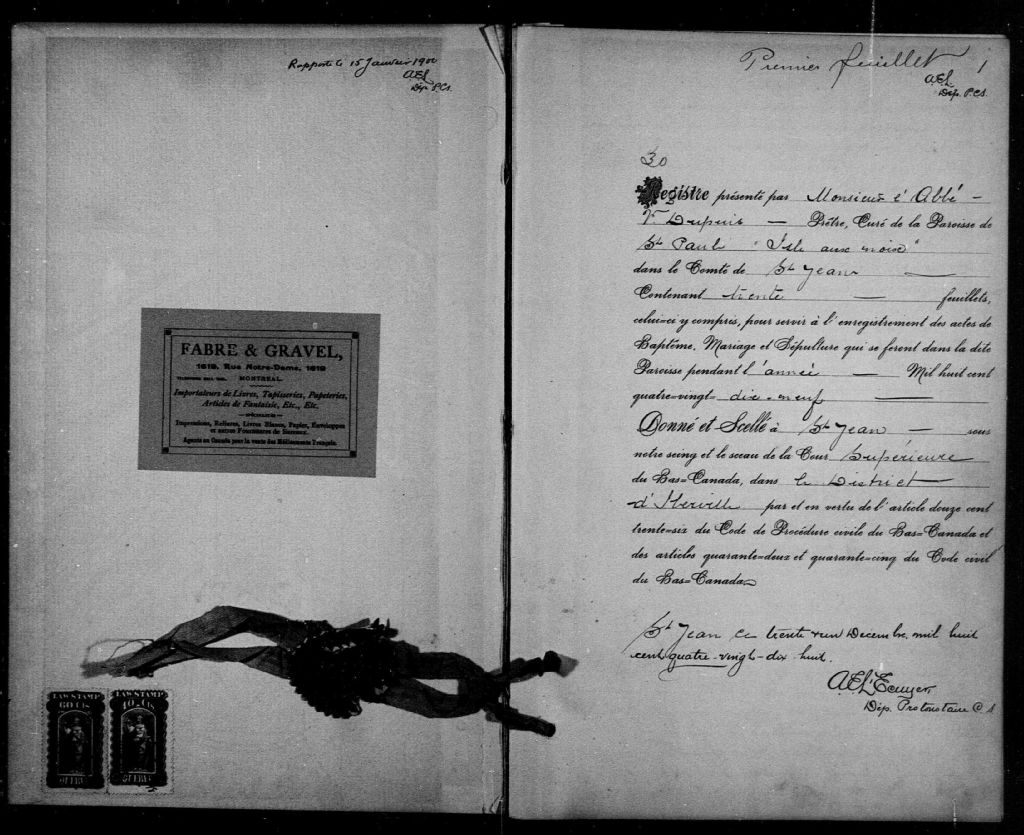 Rapporté 15 Janvier 1900
AEL
Dép. P.C.S.
FABRE & GRAVEL,
1619, Rue Notre-Dame, 1619
MONTREAL.
Importateurs de Livres, Tapisseries, Papeteries,
Articles de Fantaisie, Etc., Etc.
SPÉCIALITÉS
Impressions, Reliures, Livres Blancs, Papier, Enveloppes
et autres Fournitures de Bureaux.
Agents au Canada pour la vente des Médicaments Français.
LAW STAMP
60 CTS
QUEBEC
LAW STAMP
10 CTS
QUEBEC
Premier feuillet 1
AEL
Dép. P.C.S.
30
Registre présenté par Monsieur l'Abbé –
V. Dupuis — Prêtre, Curé de la Paroisse de
St Paul "Isle aux noix"
dans le Comté de St Jean —
Contenant trente — feuillets,
celui=ci y compris, pour servir à l'enregistrement des actes de
Baptême, Mariage et Sépulture qui se feront dans la dite
Paroisse pendant l'année — Mil huit cent
quatre=vingt dix-neuf —
Donné et Scellé à St Jean — sous
notre seing et le sceau de la Cour Supérieure
du Bas=Canada, dans le District
d'Iberville par et en vertu de l'article douze cent
trente=six du Code de Procédure civile du Bas=Canada et
des articles quarante=deux et quarante=cinq du Code civil
du Bas=Canada
St Jean ce trente & un Decembre, mil huit
cent quatre-vingt-dix huit.
AEL'Ecuyer,
Dép. Protonotaire C.S